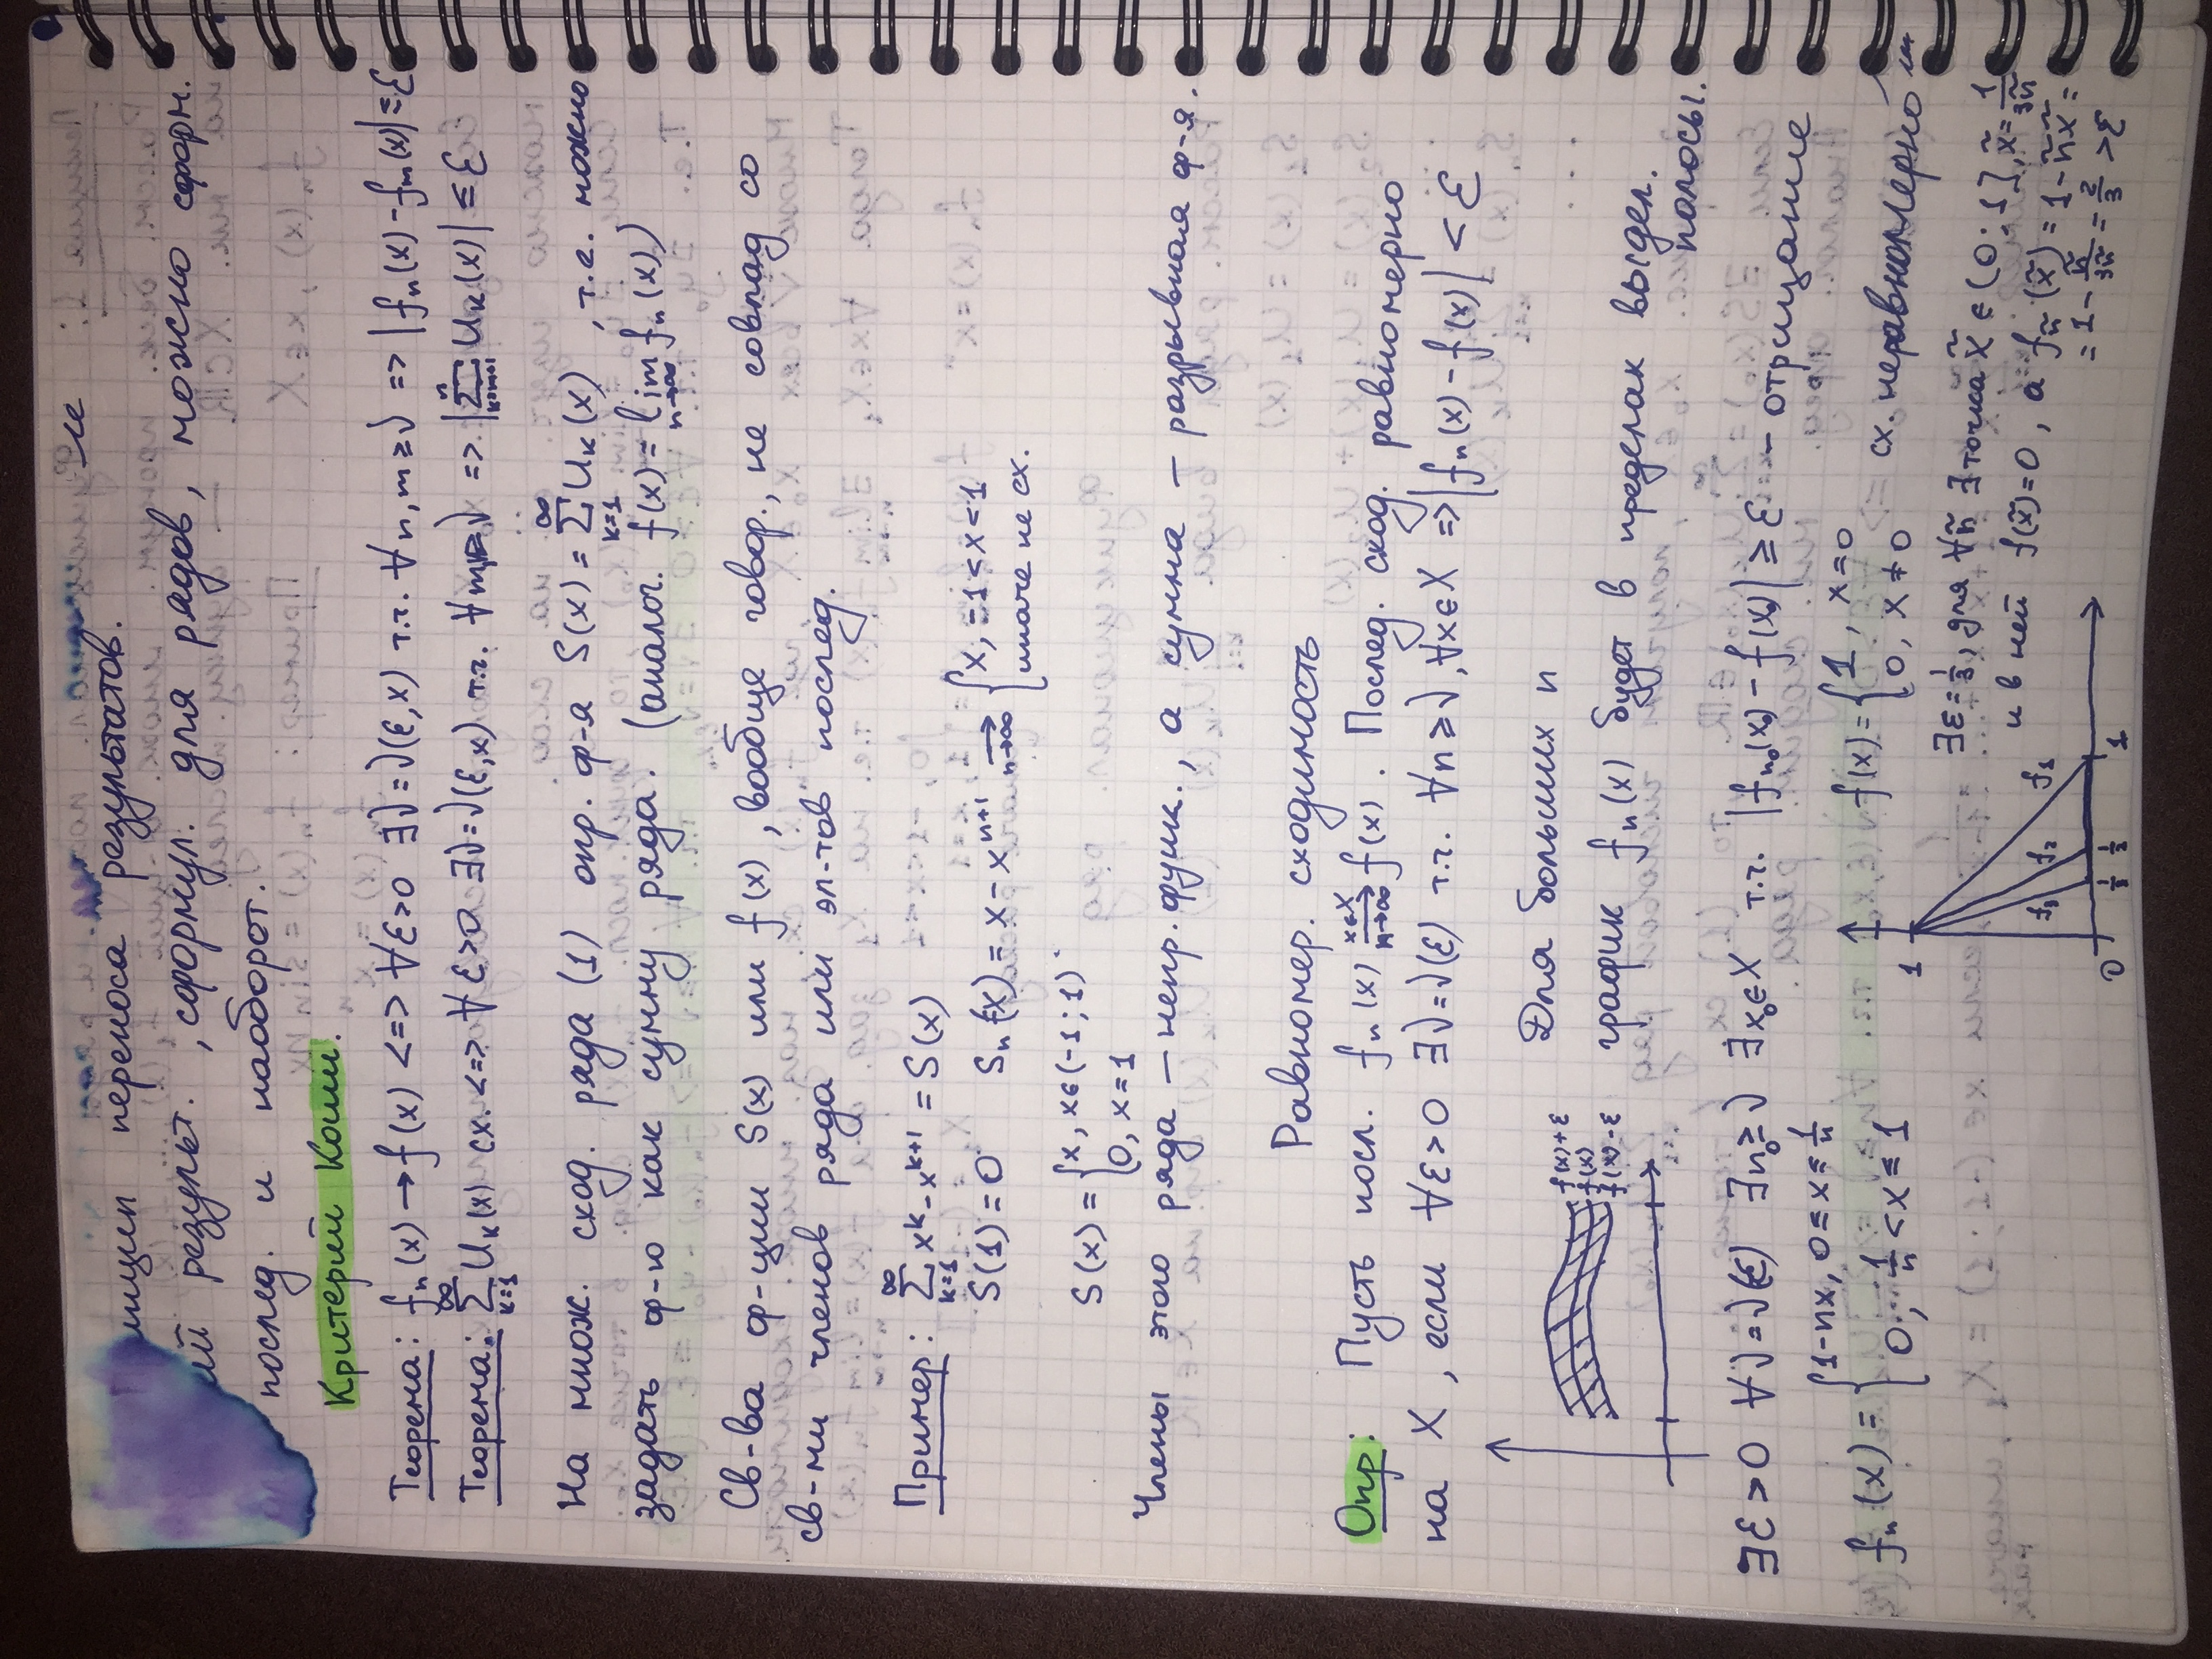 переноса результатов.
результ., сформул. для рядов, можно сформ.
послед. и наоборот.
Критерий Коши.
Теорема: fₙ(x) → f(x) <=> ∀ε>0 ∃ν=ν(ε,x) т.ч. ∀n,m ≥ ν => |fₙ(x) - fₘ(x)| ≤ ε
Теорема: ∑_{k=1}^{∞} Uₖ(x) сх. <=> ∀ε>0 ∃ν=ν(ε,x) т.ч. ∀m,n≥ν => |∑_{k=m+1}^{n} Uₖ(x)| ≤ ε
На множ. сход. ряда (1) опр. ф-я S(x) = ∑_{k=1}^{∞} Uₖ(x), т.е. можно
задать ф-ю как сумму ряда. (аналог. f(x) = lim_{n→∞} fₙ(x))
Св-ва ф-ции S(x) или f(x), вообще говор., не совпад со
св-ми членов ряда или эл-тов послед.
Пример: ∑_{k=1}^{∞} x^k - x^{k+1} = S(x)
S(1) = 0 Sₙ(x) = x - x^{n+1} →_{n→∞} { x, -1 < x < 1
иначе не сх.
S(x) = { x, x∈(-1;1)
0, x = 1
Члены этого ряда – непр. функ., а сумма – разрывная ф-я.
Равномер. сходимость
Опр: Пусть посл. fₙ(x) →^{x∈X}_{n→∞} f(x). Послед. сход. равномерно
на X, если ∀ε>0 ∃ν=ν(ε) т.ч. ∀n≥ν, ∀x∈X => |fₙ(x) - f(x)| < ε
f(x)+ε
f(x)
f(x)-ε
Для больших n
график fₙ(x) будет в пределах выдел.
полосы.
∃ε>0 ∀ν=ν(ε) ∃n₀≥ν ∃x₀∈X т.ч. |fₙ₀(x₀) - f(x₀)| ≥ ε – отрицание
fₙ(x) = { 1-nx, 0≤x≤1/n
0, 1/n < x ≤ 1
f(x) = { 1, x=0
0, x≠0
сх. неравномерно
∃ε=1/3, для ∀ñ ∃ точка x̃ ∈ (0;1], x̃ = 1/3ñ
и в ней f(x̃)=0, а f_ñ(x̃) = 1-ñx̃ =
= 1 - ñ/3ñ = 2/3 > ε
1
f₃ f₂ f₁
0 1/3 1/2 1